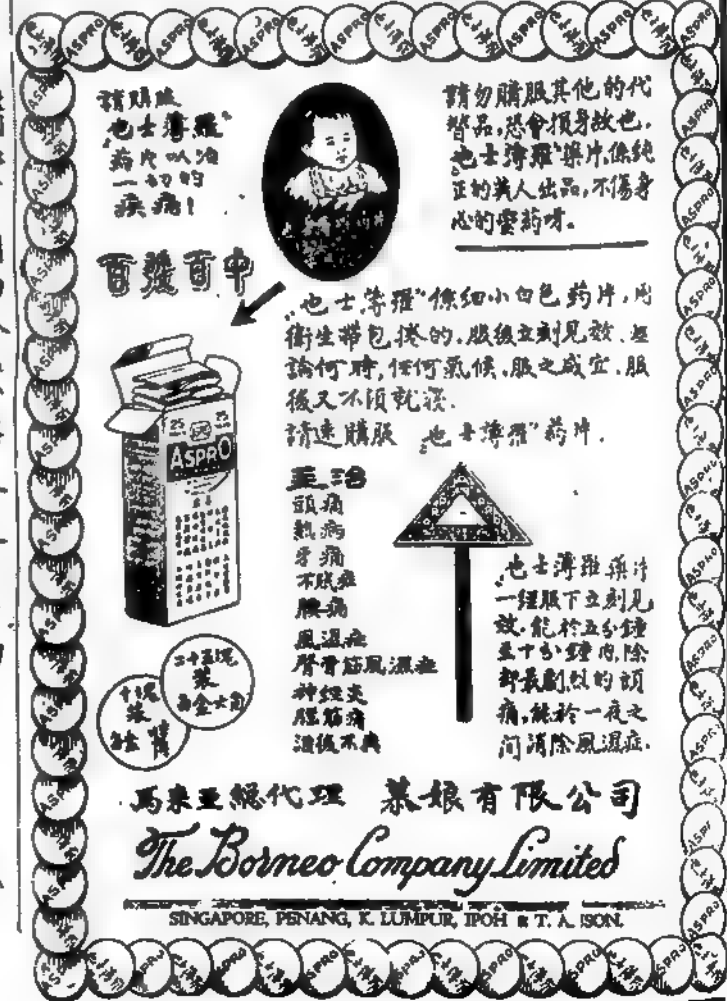 請購服
„也士薄羅”
药片以治
一切的
疾痛！
請勿購服其他的代
替品，恐會損身故也，
„也士薄羅”藥片，係純
正的英人出品，不傷身
心的聖药呀。
百發百中
„也士薄羅”係細小白色药片，用
衛生帶包捲的，服後立刻見效，無
論何時，任何氣候，服之咸宜，服
後又不須就寢．
請速購服 „也士薄羅”药片．
25 25
ASPRO
主治
頭痛
熱病
牙痛
不眠症
腰痛
風濕症
骨筋風濕症
神經炎
酒後不興
„也士薄羅藥片
一經服下立刻見
效，能於五分鐘
至十分鐘內，除
却最劇烈的頭
痛，能於一夜之
间消除風濕症．
二十五塊
裝
十塊
裝
馬來亞總代理 慕娘有限公司
The Borneo Company Limited
SINGAPORE, PENANG, K. LUMPUR, IPOH & T. A. ISON.